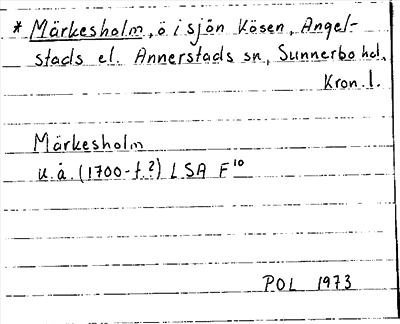 * Märkesholm, ö i sjön Kösen, Angel-
stads el. Annerstads sn, Sunnerbo hd,
Kron. l.
Märkesholm
u.å. (1700-t.?) LSA F10
POL 1973